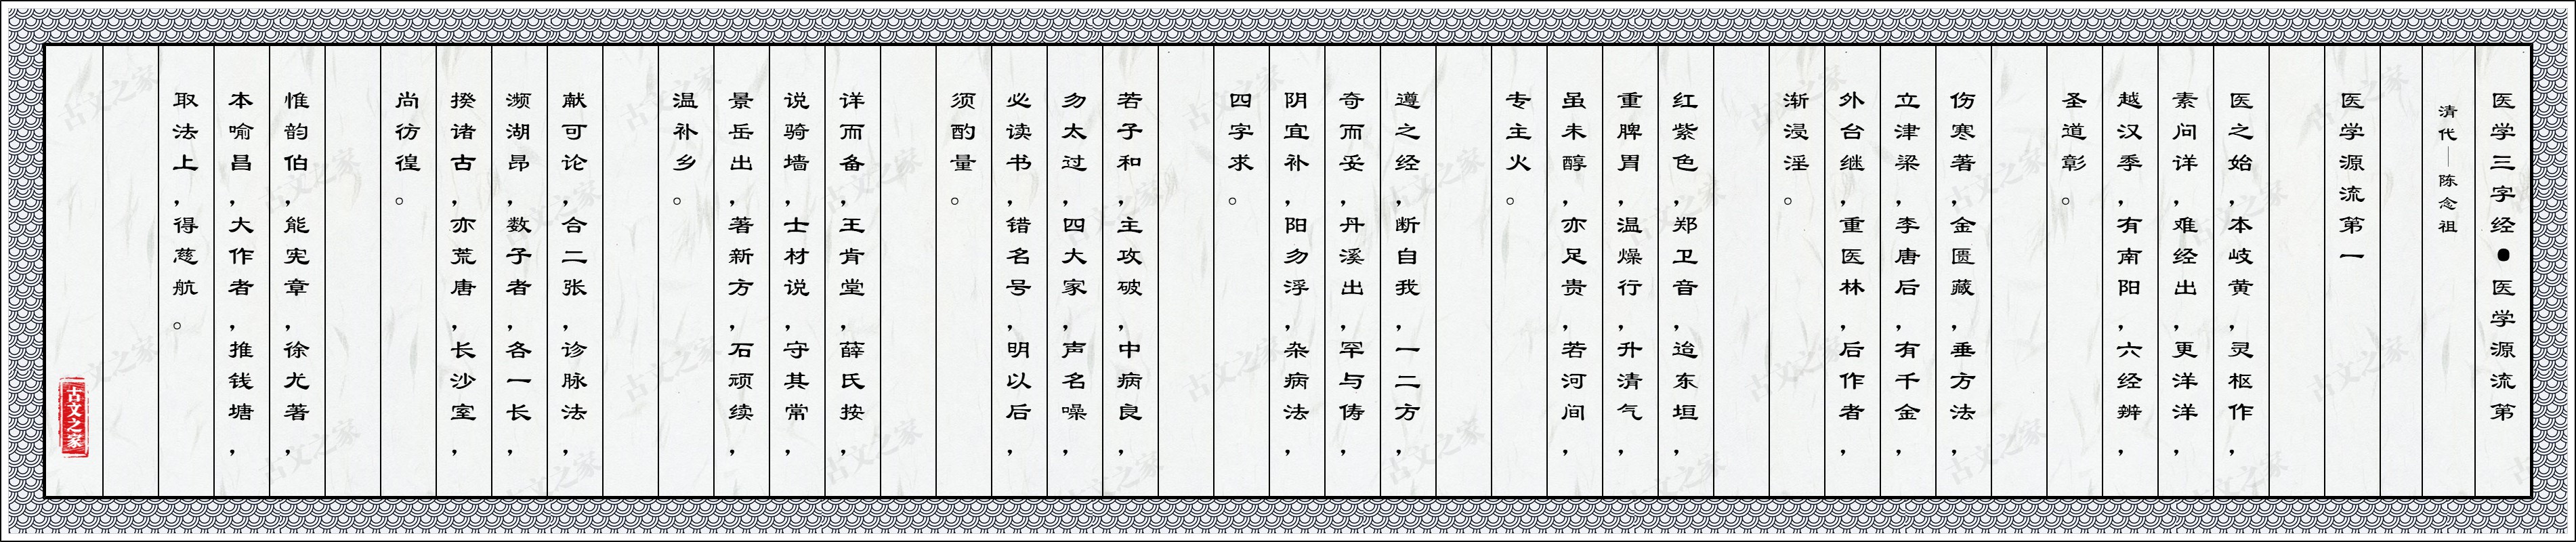 医学三字经●医学源流第
清代—陈念祖
医学源流第一
医之始，本岐黄，灵枢作，
素问详，难经出，更洋洋，
越汉季，有南阳，六经辨，
圣道彰。
伤寒著，金匮藏，垂方法，
立津梁，李唐后，有千金，
外台继，重医林，后作者，
渐浸淫。
红紫色，郑卫音，迨东垣，
重脾胃，温燥行，升清气，
虽未醇，亦足贵，若河间，
专主火。
遵之经，断自我，一二方，
奇而妥，丹溪出，罕与俦，
阴宜补，阳勿浮，杂病法，
四字求。
若子和，主攻破，中病良，
勿太过，四大家，声名噪，
必读书，错名号，明以后，
须酌量。
详而备，王肯堂，薛氏按，
说骑墙，士材说，守其常，
景岳出，著新方，石顽续，
温补乡。
献可论，合二张，诊脉法，
濒湖昂，数子者，各一长，
揆诸古，亦荒唐，长沙室，
尚彷徨。
惟韵伯，能宪章，徐尤著，
本喻昌，大作者，推钱塘，
取法上，得慈航。
古文之家